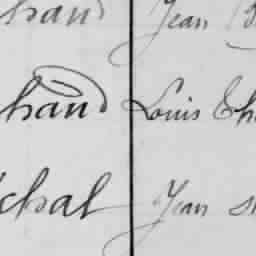 hand Jean
hand Louis Th
chal Jean